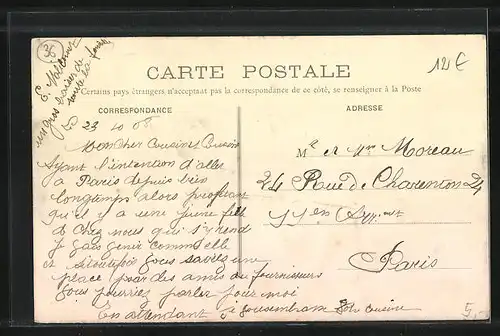 36
E. Moleur
un gros baiser de
toute la famille
12 €
CARTE POSTALE
Certains pays étrangers n'acceptant pas la correspondance de ce côté, se renseigner à la Poste
CORRESPONDANCE
ADRESSE
Le 23 10 08
Mon Cher Cousine & Cousin
Ayant l'intention d'aller
a Paris depuis bien
longtemps alors profitant
qu'il y a une jeune fille
de chez nous qui s'y rend
Je vais venir comme elle
et si toutefois vous savez une
place par des amis ou fournisseurs
vous pourriez parler pour moi
En attendant votre cousine
Mr et Mme Moreau
24 Rue De Charenton 24
Arr.ent
Paris